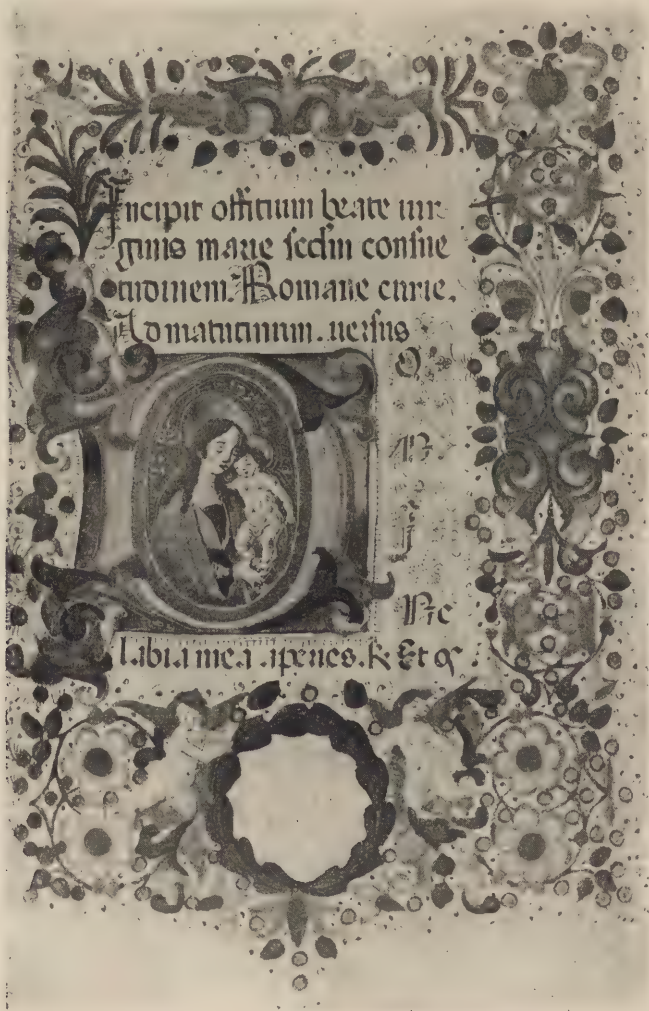 Incipit offitium beate uir
ginis marie scdm consue
tudinem. Romane curie.
Ad matutinum. uersus
D O
N
I
Ne
labia mea aperies. R Et os